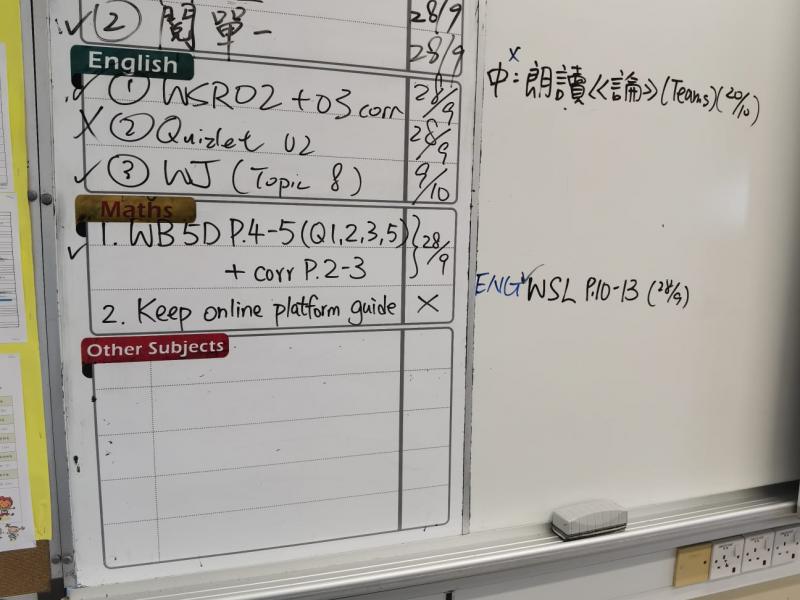 ✓ ② 閱單一 28/9
28/9
English
✓ ① WSR02 + 03 corr 28/9
X ② Quizlet U2 28/9
✓ ③ WJ (Topic 8) 9/10
Maths
✓ 1. WB 5D P.4-5 (Q1,2,3,5) } 28/9
+ corr P.2-3
2. Keep online platform guide X
Other Subjects
x
中: 朗讀《論》(Teams) (20/10)
ENG ✓ WSL P.10-13 (28/9)